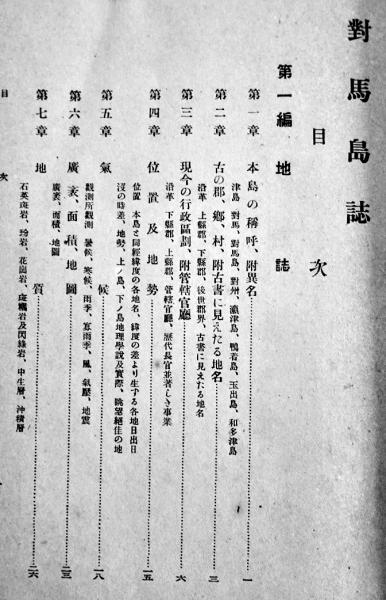 對馬島誌
目次
第一編 地誌
第一章 本島の稱呼、附異名…一
津島 對馬 對馬島、對州、瀛津島、鴨着島、玉出島、和多津島
第二章 古の郡、鄉、村、附古書に見えたる地名…三
沿革 上縣郡、下縣郡、後世郡界、古書に見えたる地名
第三章 現今の行政區劃、附管轄官廳…六
沿革 下縣郡、上縣郡、管轄官廳、歷代長官並著しき事業
第四章 位置及地勢…一五
位置 本島と同經緯度の各地名、緯度の差より生ずる各地日出日
沒の時差、地勢、上ノ島、下ノ島地理學說及實際、眺望絕佳の地
第五章 氣候…一八
觀測所觀測 暑候、寒候、雨季、寡雨季、風、氣壓、地震
第六章 廣袤、面積、地圖…二三
廣袤、面積、地圖
第七章 地質…二六
石英斑岩、玢岩、花崗岩、輝綠岩及閃綠岩、中生層、沖積層
目次